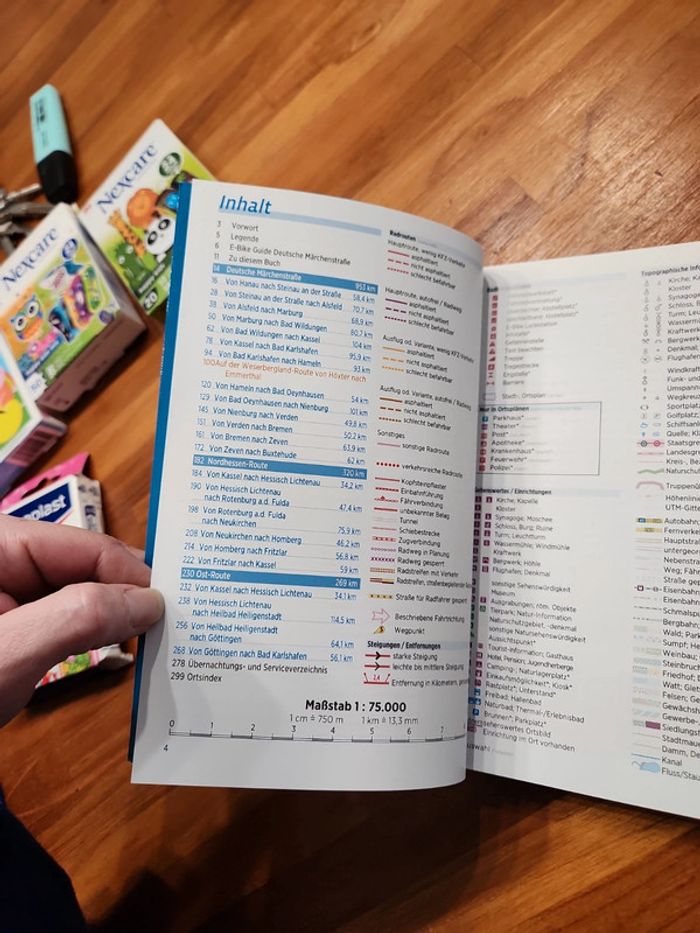 Nexcare
Nexcare
plast
Inhalt
3 Vorwort
5 Legende
6 E-Bike Guide Deutsche Märchenstraße
11 Zu diesem Buch
14 Deutsche Märchenstraße 953 km
16 Von Hanau nach Steinau an der Straße 58,4 km
28 Von Steinau an der Straße nach Alsfeld 70,7 km
38 Von Alsfeld nach Marburg 68,9 km
50 Von Marburg nach Bad Wildungen 80,7 km
62 Von Bad Wildungen nach Kassel 104 km
78 Von Kassel nach Bad Karlshafen 95,9 km
94 Von Bad Karlshafen nach Hameln 93 km
100 Auf der Weserbergland-Route von Höxter nach
Emmerthal 62 km
120 Von Hameln nach Bad Oeynhausen 54 km
129 Von Bad Oeynhausen nach Nienburg 101 km
145 Von Nienburg nach Verden 49,8 km
151 Von Verden nach Bremen 50,2 km
161 Von Bremen nach Zeven 63,9 km
172 Von Zeven nach Buxtehude 62 km
182 Nordhessen-Route 320 km
184 Von Kassel nach Hessisch Lichtenau 34,2 km
190 Von Hessisch Lichtenau
nach Rotenburg a.d. Fulda 47,4 km
198 Von Rotenburg a.d. Fulda
nach Neukirchen 75,9 km
208 Von Neukirchen nach Homberg 46,2 km
214 Von Homberg nach Fritzlar 56,8 km
222 Von Fritzlar nach Kassel 59 km
230 Ost-Route 269 km
232 Von Kassel nach Hessisch Lichtenau 34,1 km
238 Von Hessisch Lichtenau
nach Heilbad Heiligenstadt 114,5 km
256 Von Heilbad Heiligenstadt
nach Göttingen 64,1 km
268 Von Göttingen nach Bad Karlshafen 56,1 km
278 Übernachtungs- und Serviceverzeichnis
299 Ortsindex
Radrouten
Hauptroute, wenig KFZ-Verkehr
asphaltiert
nicht asphaltiert
schlecht befahrbar
Hauptroute, autofrei / Radweg
asphaltiert
nicht asphaltiert
schlecht befahrbar
Ausflug od. Variante, wenig KFZ-Verkehr
asphaltiert
nicht asphaltiert
schlecht befahrbar
Ausflug od. Variante, autofrei / Radweg
asphaltiert
nicht asphaltiert
schlecht befahrbar
Sonstiges
sonstige Radroute
verkehrsreiche Radroute
Kopfsteinpflaster
Einbahnführung
Fährverbindung
unbekannter Belag
Tunnel
Schiebestrecke
Zugverbindung
Radweg in Planung
Radweg gesperrt
Radstreifen mit Verkehr
Radstreifen, straßenbegleitender
Straße für Radfahrer gesperrt
Beschriebene Fahrtrichtung
Wegpunkt
Steigungen / Entfernungen
starke Steigung
leichte bis mittlere Steigung
Entfernung in Kilometern,
Maßstab 1 : 75.000
1 cm ≙ 750 m 1 km ≙ 13,3 mm
0 1 2 3 4 5 6 7
4
Barriere
Stadt-, Ortsplan
Nur in Ortsplänen
Parkhaus*
Theater*
Post*
Apotheke*
Krankenhaus*
Feuerwehr*
Polizei*
Sehenswertes / Einrichtungen
Kirche; Kapelle
Kloster
Synagoge; Moschee
Schloss, Burg; Ruine
Turm; Leuchtturm
Wassermühle; Windmühle
Kraftwerk
Bergwerk; Höhle
Flughafen; Denkmal
sonstige Sehenswürdigkeit
Museum
Ausgrabungen; röm. Objekte
Tierpark; Natur-Information
Naturschutzgebiet, -denkmal
sonstige Natursehenswürdigkeit
Aussichtspunkt*
Tourist-Information; Gasthaus
Hotel, Pension; Jugendherberge
Camping-; Naturlagerplatz*
Einkaufsmöglichkeit*; Kiosk*
Rastplatz*; Unterstand*
Freibad; Hallenbad
Naturbad; Thermal-/Erlebnisbad
Brunnen*; Parkplatz*
sehenswertes Ortsbild
Einrichtung im Ort vorhanden
Topographische Info
Kirche; Ka
Kloster
Schloss, B
Turm; Leu
Wasserm
Kraftwerk
Bergwerk
Denkmal,
Flughafen
Windkraft
Funk- und
Umspann
Wegkreuz
Sportplatz
Golfplatz;
Schiffsanl
Quelle; Kl
Staatsgre
Landesgre
Kreis-, Be
Naturschu
Truppenü
Höhenlin
UTM-Gitte
Autobahn
Fernverke
Hauptstra
untergeor
Nebenstra
Weg; Fähr
Straße in
Eisenbahn
Eisenbahn
Schmalspu
Bergbahn;
Wald; Park
Sumpf; He
Weinbau;
Steinbruch
Friedhof; D
Watt; Gl
Felsen; Ge
Gewächsh
Gewerbe-
Siedlungsf
Stadtmaue
Damm, De
Kanal
Fluss/Stau